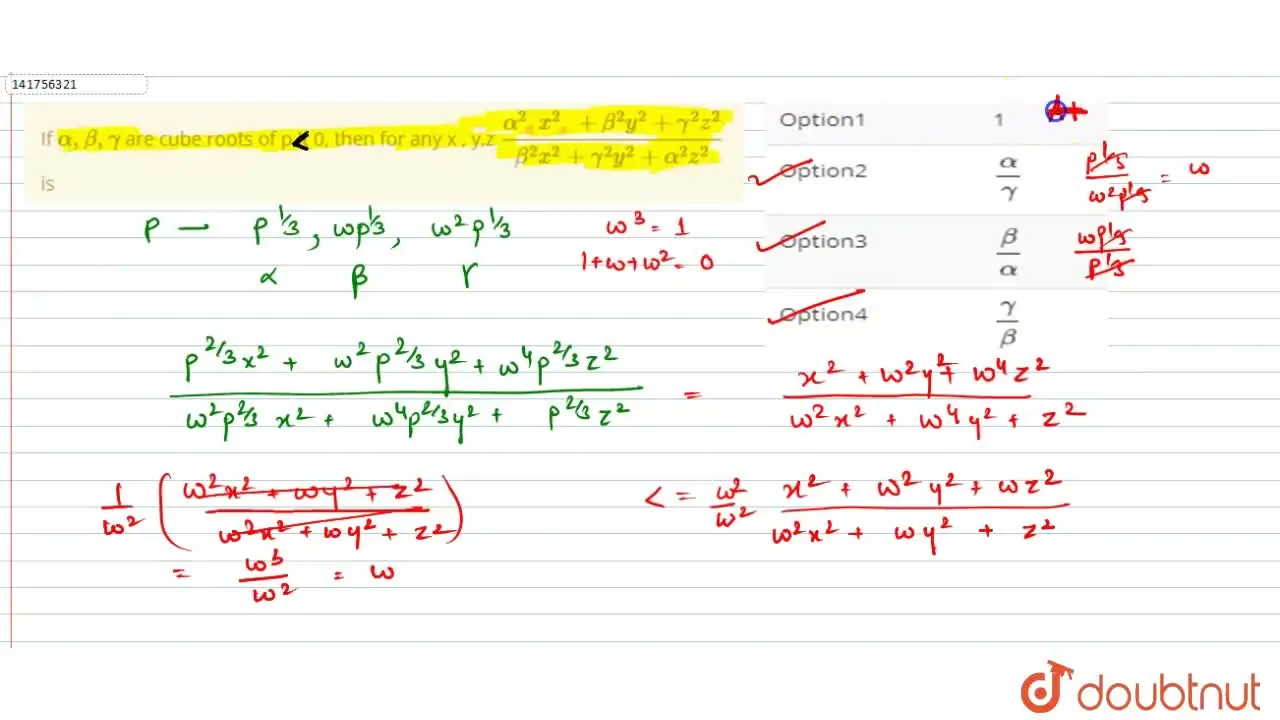 141756321
If α, β, γ are cube roots of p < 0, then for any x , y.z (α² x² + β²y² + γ²z²)/(β²x² + γ²y² + α²z²)
is
Option1 1
Option2 α/γ
p^1/3 / ω²p^1/3 = ω
Option3 β/α
ωp^1/3 / p^1/3
Option4 γ/β
P → p^1/3, ωp^1/3, ω²p^1/3
α β γ
ω³ = 1
1+ω+ω² = 0
(p^2/3 x² + ω² p^2/3 y² + ω⁴p^2/3 z²)/(ω²p^2/3 x² + ω⁴p^2/3 y² + p^2/3 z²) = (x² + ω²y² + ω⁴z²)/(ω²x² + ω⁴y² + z²)
= ω²/ω² (x² + ω²y² + ωz²)/(ω²x² + ωy² + z²)
1/ω² ((ω²x² + ωy² + z²)/(ω²x² + ωy² + z²))
= ω³/ω² = ω
doubtnut